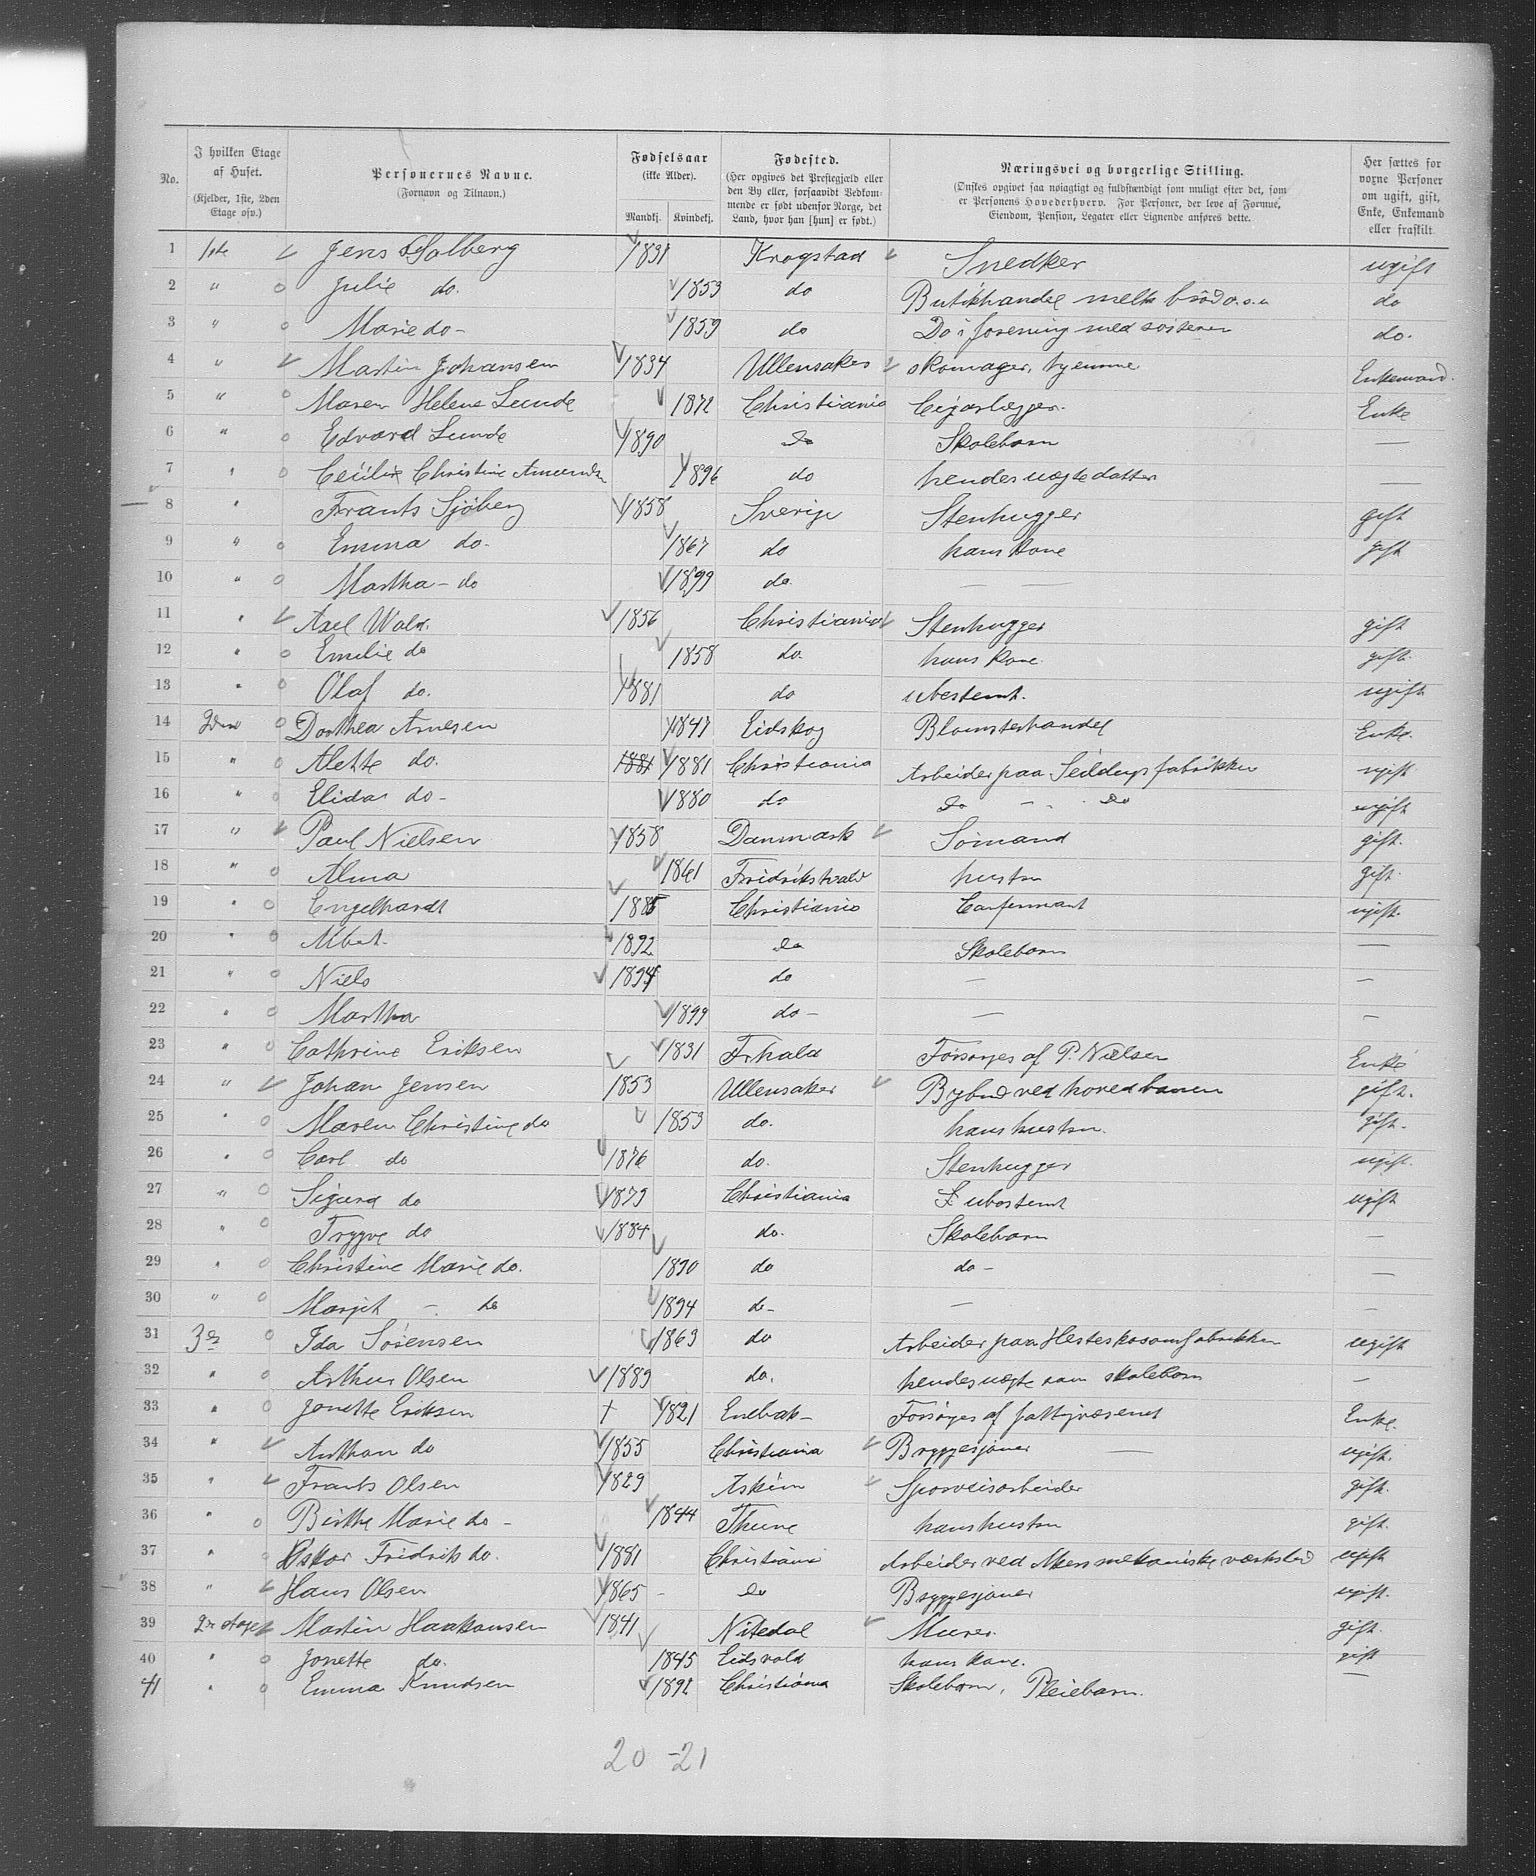 No.
I hvilken Etage
af Huset.
(Kjelder, 1ste, 2den
Etage osv.)
Personernes Navne.
(Fornavn og Tilnavn.)
Fødselsaar
(ikke Alder).
Mandkj.
Kvindekj.
Fødested.
(Her opgives det Prestegjæld eller
den By eller, forsaavidt Vedkom-
mende er født udenfor Norge, det
Land, hvor han [hun] er født.)
Næringsvei og borgerlige Stilling.
(Ønskes opgivet saa nøiagtigt og fuldstændigt som muligt efter det, som
er Personens Hovederhverv. For Personer, der leve af Formue,
Eiendom, Pension, Legater eller Lignende anføres dette.
Her sættes for
voxne Personer
om ugift, gift,
Enke, Enkemand
eller fraskilt.
1 1ste Jens Solberg 1831 Krogstad Snedker ugift
2 " Julie do. 1853 do Butikhandel melk brød o.s.v do
3 " Marie do - 1859 do Do i forening med søsteren do.
4 " Martin Johansen 1834 Ullensaker skomager, hjemme Enkemand.
5 " Maren Helene Lunde 1872 Christiania Cigarlægger. Enke
6 " Edvard Lunde 1890 do Skolebarn —
7 " Cecilie Christine 1896 do hendes uægte datter —
8 " Frants Sjöberg 1858 Sverige Stenhugger gift
9 " Emma do. 1867 do hans kone gift
10 " Martha - do 1899 do. — —
11 " Axel Wold. 1856 Christiania Stenhugger gift
12 " Emilie do 1858 do. hans kone. gift.
13 " Olaf do. 1881 do ubestemt. ugift
14 2den Dorthea Arnesen 1847 Eidskog Blomsterhandel Enke.
15 " Alette do. 1881 1881 Christiania Arbeider paa fabrikken ugift
16 " Elida do - 1880 do do - " - do ugift
17 " Paul Nielsen 1858 Danmark Sømand gift.
18 " Alma 1861 Fridrikshald hustru gift.
19 " Engelhardt 1885 Christiania ugift.
20 " Albert. 1892 do Skolebarn —
21 " Niels 1894 do — —
22 " Martha 1899 do - — —
23 " Cathrine Eriksen 1831 Frhald Forsørges af P. Nielsen Enke
24 " Johan Jensen 1853 Ullensaker Bybud ved hovedbanen gift.
25 " Maren Christine do 1853 do. hans hustru. gift.
26 " Carl do 1876 do. Stenhugger ugift.
27 " Sigurd do 1879 Christiania ubestemt ugift
28 " Trygve do 1884 do. Skolebarn —
29 " Christine Marie do. 1890 do do - —
30 " Margit - do 1894 do - — —
31 3die Ida Sørensen 1863 do Arbeider paa Hesteskosømfabrikken ugift
32 " Arthur Olsen 1889 do. hendes uægte søn skolebarn —
33 " Jonette Eriksen 1821 Enebak - Forsørges af fattigvæsenet Enke.
34 " Anthon do 1855 Christiania Bryggesjauer — ugift.
35 " Frants Olsen 1829 Askim Sporveisarbeider gift.
36 " Birthe Marie do - 1844 Thune hans hustru gift.
37 " Oskar Fridrik do. 1881 Christiania Arbeider ved Akers mekaniske værksted ugift
38 " Hans Olsen 1865 - do Bryggesjauer ugift.
39 2. etage Martin Haakonsen 1841 Nitedal Murer. gift.
40 " Jonette do. 1845 Eidsvold hans kone. gift
41 " Emma Knudsen 1892 Christiania Skolebarn, Pleiebarn. —
20 - 21